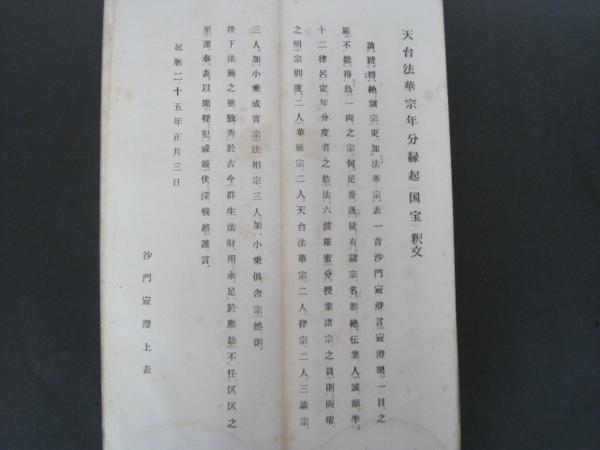 天台法華宗年分縁起（国宝）釈文
請続将絶諸宗更加法華宗表一首沙門最澄言最澄聞一目之
羅不能得鳥一両之宗何足普汲徒有諸宗名忽絶伝業人誠願準
十二律呂定年分度者之数法六波羅蜜分授業諸宗之員則両曜
之明宗別度二人華厳宗二人天台法華宗二人律宗二人三論宗
三人加小乗成実宗法相宗三人加小乗倶舎宗然則
陛下法施之徳独秀於古今群生法財用永足於塵劫不任区区之
至謹奉表以聞軽犯威厳伏深戦越謹言
延暦二十五年正月三日
沙門最澄上表